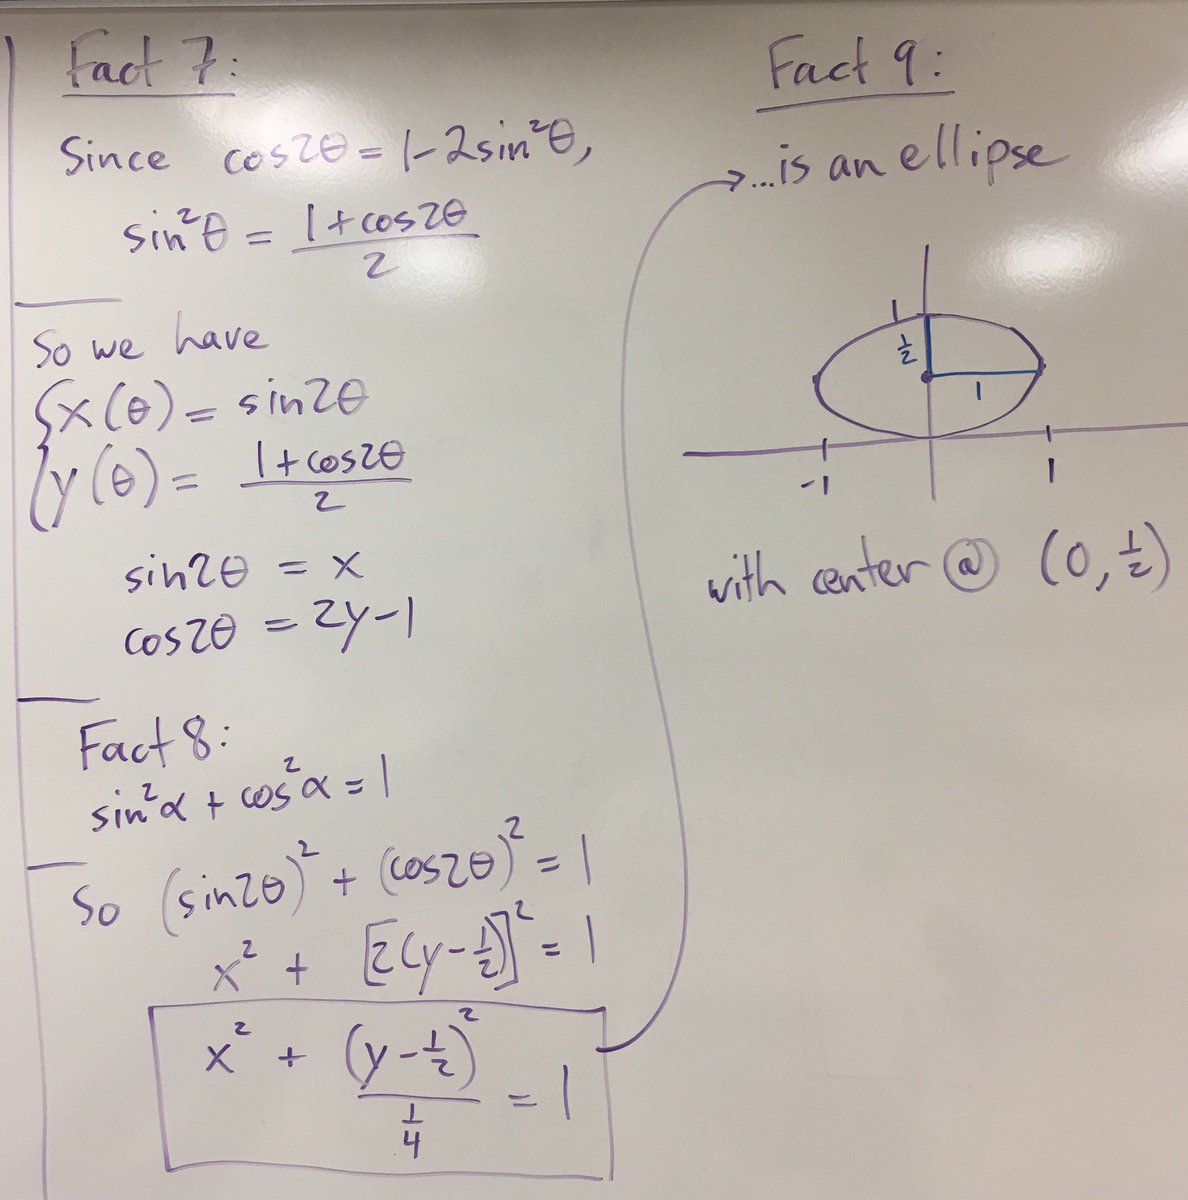 Fact 7:
Since cos2θ = 1-2sin²θ,
sin²θ = (1+cos2θ)/2
So we have
{x(θ) = sin2θ
{y(θ) = (1+cos2θ)/2
sin2θ = x
cos2θ = 2y-1
Fact 8:
sin²α + cos²α = 1
So (sin2θ)² + (cos2θ)² = 1
x² + [2(y-½)]² = 1
x² + (y-½)²/¼ = 1
Fact 9:
...is an ellipse
1
½
1
-1
1
with center @ (0, ½)